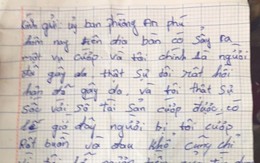 Kính gửi ủy ban phường An phú
hôm nay trên địa bàn có sảy ra
một vụ cướp và tôi chính là người
đã gây ra thật sự tôi rất hối
hận đã gây ra. và tôi thật sự
sốc với số tài sản cướp được, có
lẽ giờ đây người bị tôi cướp
Rất buồn và đau khổ cũng chỉ